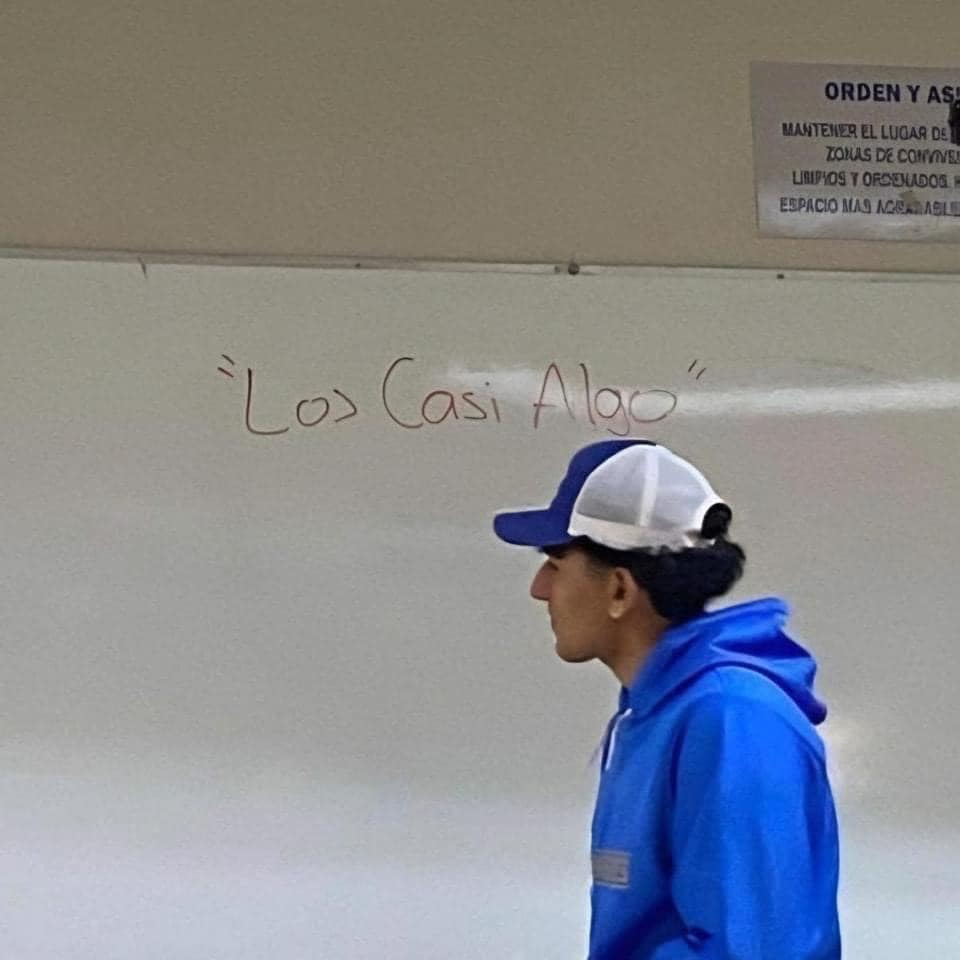 ORDEN Y AS
MANTENER EL LUGAR DE
ZONAS DE
LIMPIOS Y ORDENADOS.
ESPACIO MAS
"Los Casi Algo"